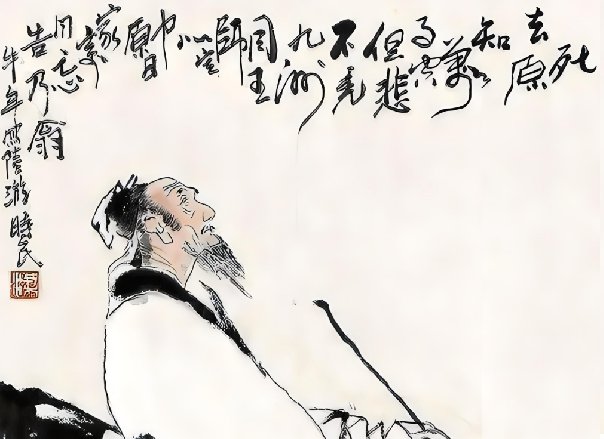 死
去原
知
萬
事空
但悲
不見
九州
同王
師
北定
中
原日
家祭
毋忘
告乃翁
牛年寫陸游